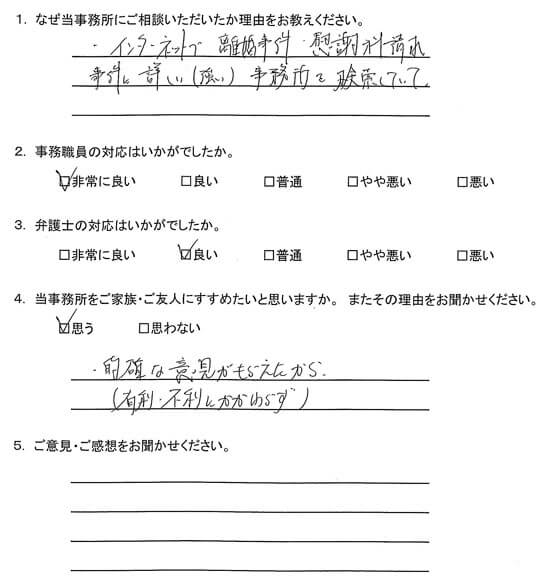 1. なぜ当事務所にご相談いただいたか理由をお教えください。
・インターネットで 離婚事件・慰謝料請求
事件に詳しい(強い)事務所を検索していて。
2. 事務職員の対応はいかがでしたか。
☑非常に良い □良い □普通 □やや悪い □悪い
3. 弁護士の対応はいかがでしたか。
□非常に良い ☑良い □普通 □やや悪い □悪い
4. 当事務所をご家族・ご友人にすすめたいと思いますか。 またその理由をお聞かせください。
☑思う □思わない
・的確な意見がもらえたから。
(有利・不利にかかわらず)
5. ご意見・ご感想をお聞かせください。